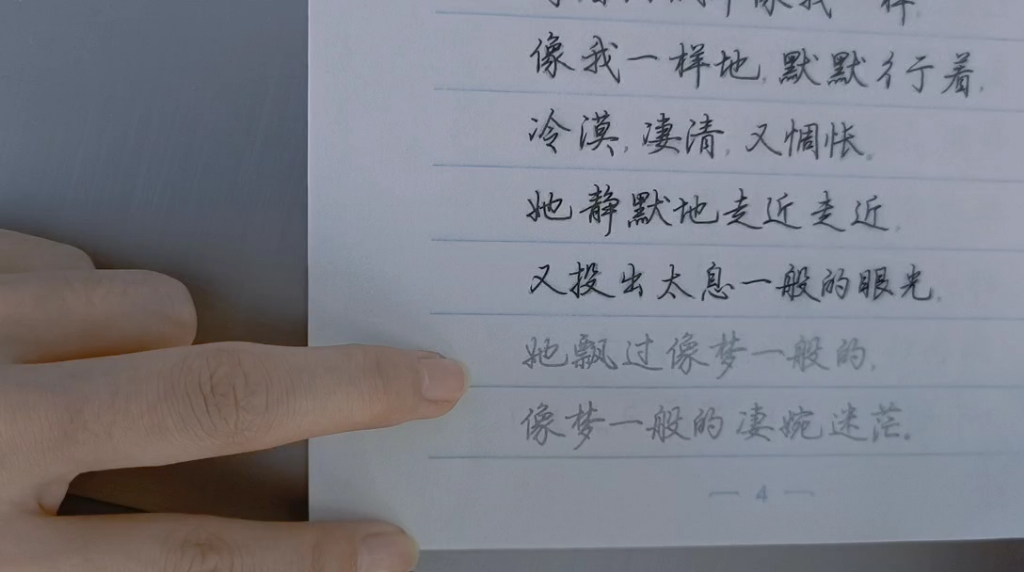 像我一样地,默默彳亍着,
冷漠,凄清,又惆怅。
她静默地走近走近,
又投出太息一般的眼光,
她飘过像梦一般的,
像梦一般的凄婉迷茫。
— 4 —